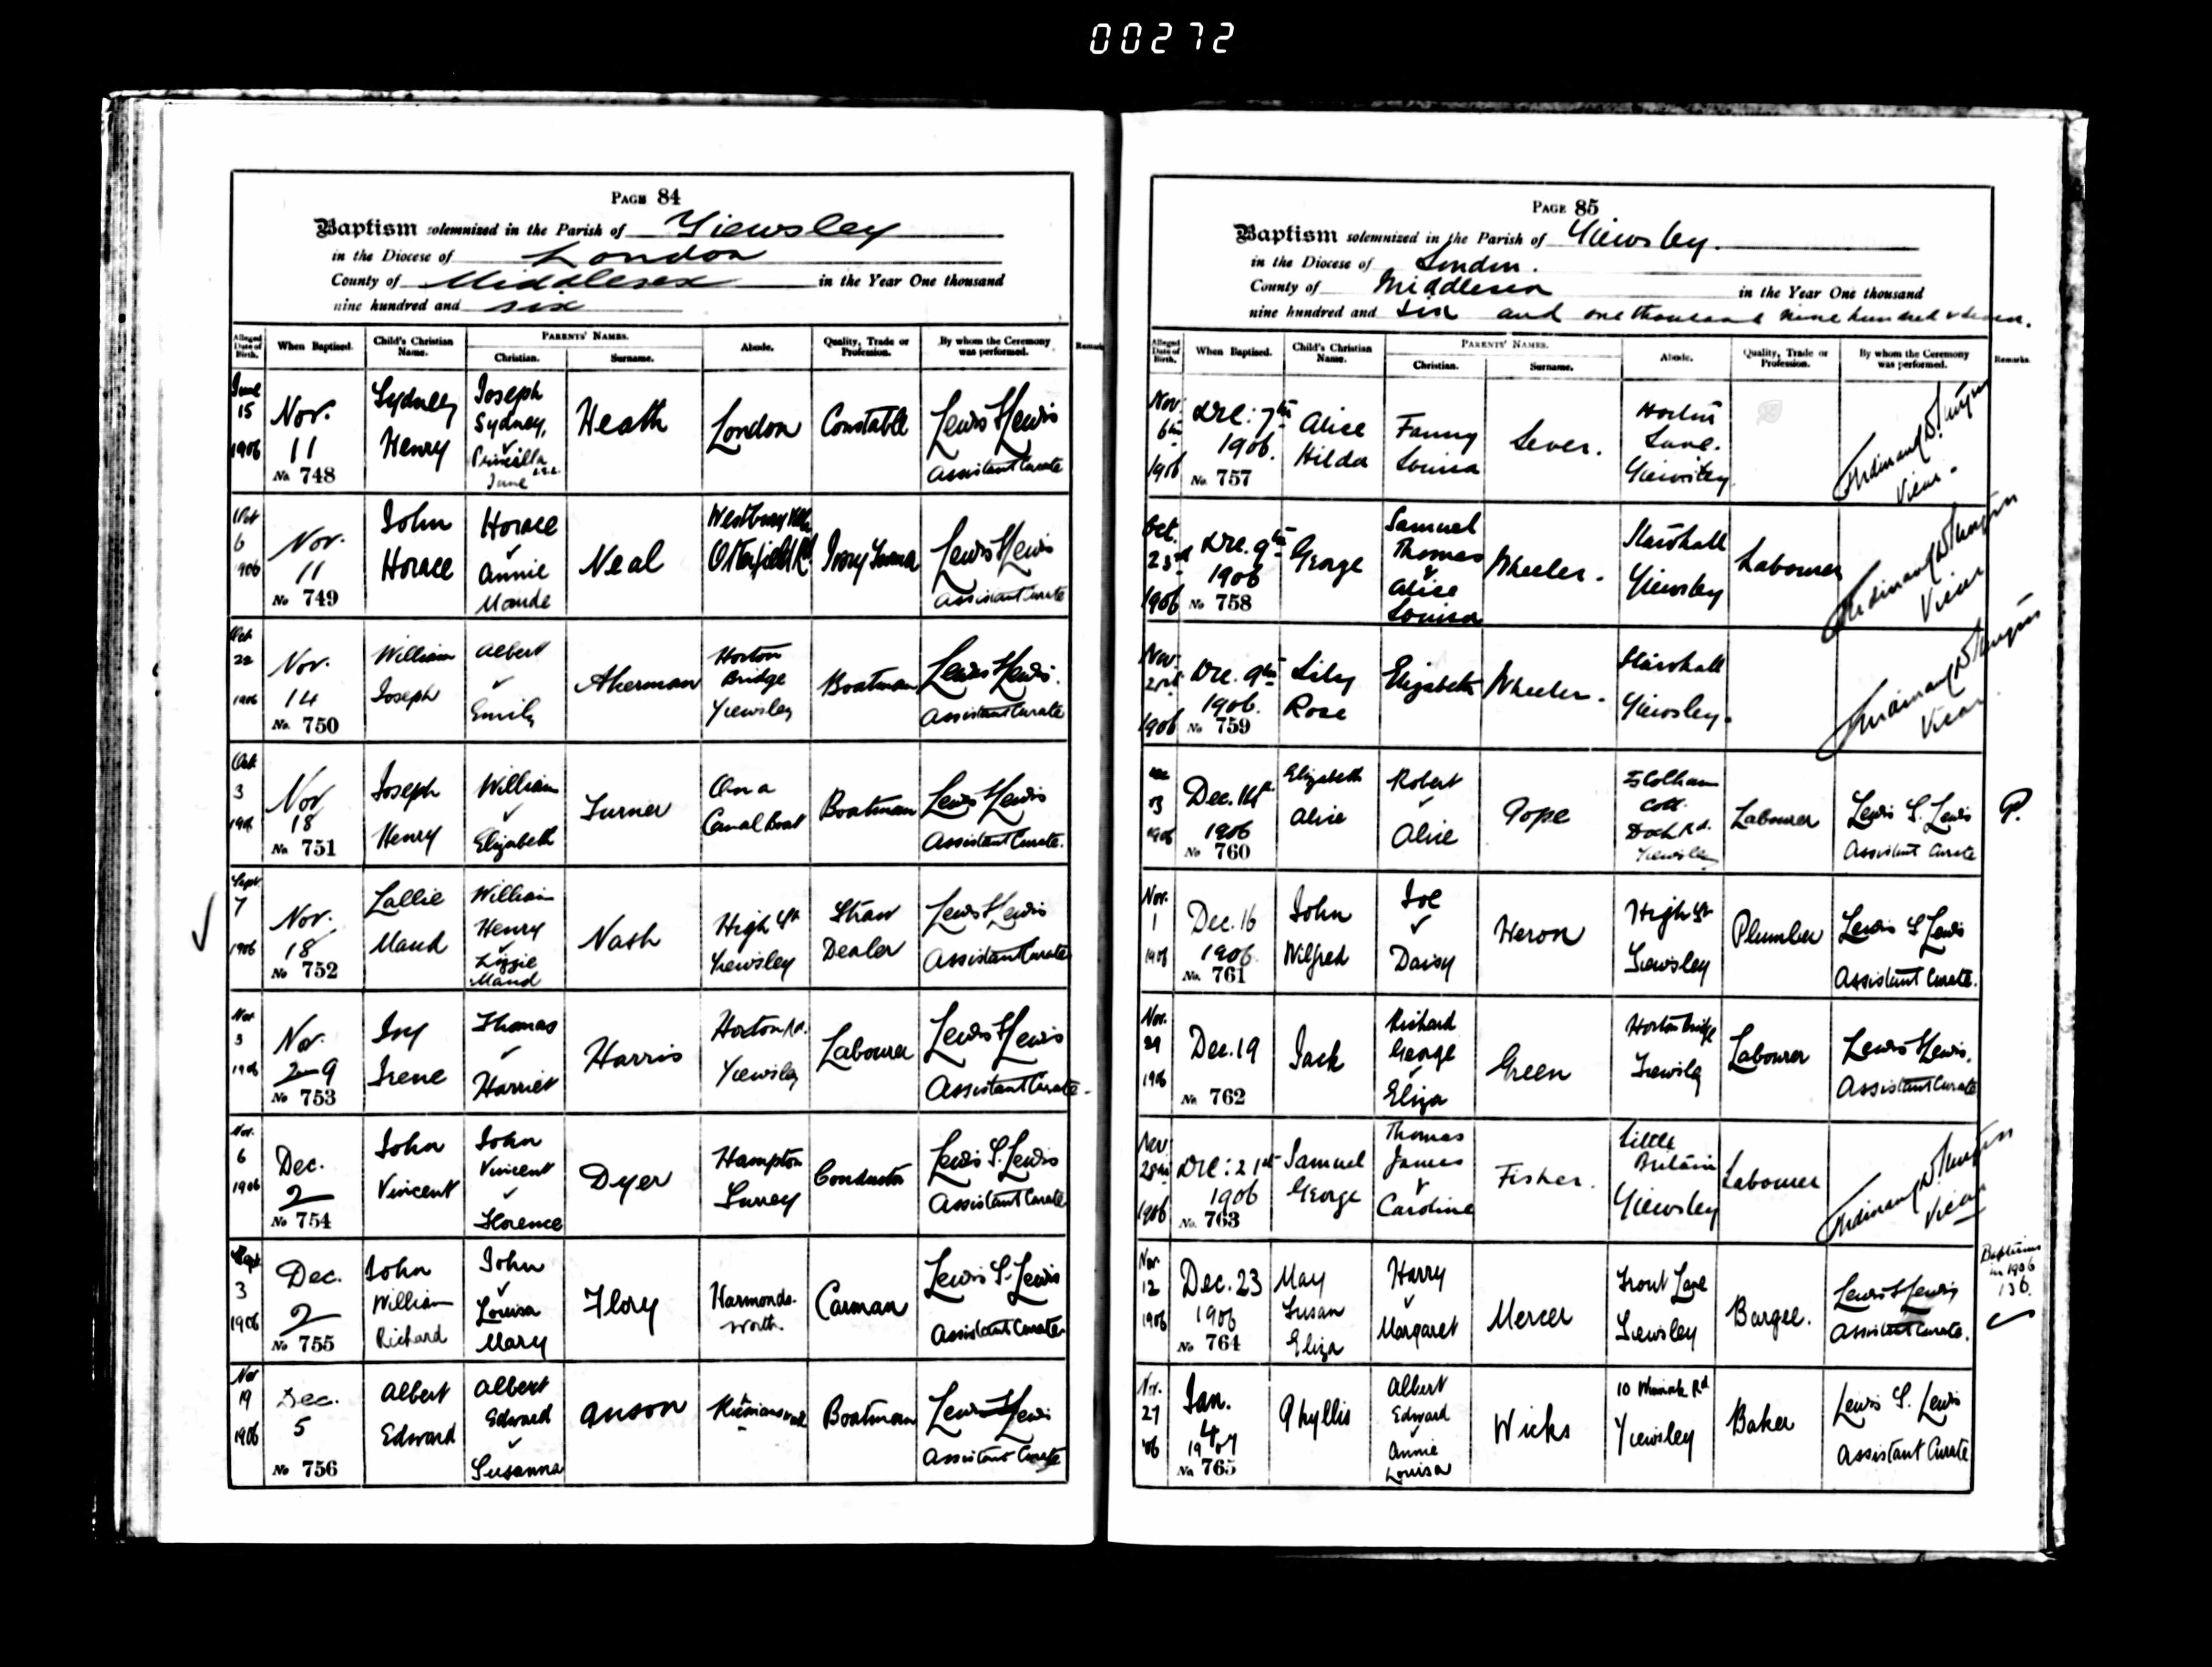 00272
PAGE 84
Baptism solemnized in the Parish of Yiewsley
in the Diocese of London
County of Middlesex in the Year One thousand
nine hundred and six
Alleged Date of Birth. When Baptised. Child's Christian Name. PARENTS' NAMES. Christian. Surname. Abode. Quality, Trade or Profession. By whom the Ceremony was performed. Remarks
June 15 1906 Nov. 11 No 748 Sydney Henry Joseph Sydney, & Priscilla Jane Heath London Constable Lewis S Lewis Assistant Curate
Oct 6 1906 Nov. 11 No 749 John Horace Horace & Annie Maude Neal Otterfield Rd Lewis S Lewis Assistant Curate
22 1906 Nov. 14 No. 750 William Joseph Albert & Emily Akerman Horton Bridge Yiewsley Boatman Lewis S Lewis. Assistant Curate
Oct 3 1906 Nov 18 No. 751 Joseph Henry William & Elizabeth Turner On a Canal Boat Boatman Lewis S Lewis Assistant Curate.
Sept 7 1906 Nov. 18 No 752 Lallie Maud William Henry & Lizzie Maud Nash High St Yiewsley Straw Dealer Lewis S Lewis Assistant Curate
Nov 3 1906 Nov. 29 No 753 Ivy Irene Thomas & Harriet Harris Horton Rd. Yiewsley Labourer Lewis S Lewis Assistant Curate.
Nov. 6 1906 Dec. 2 No 754 John Vincent John Vincent & Florence Dyer Hampton Surrey Conductor Lewis S. Lewis Assistant Curate
Sept 3 1906 Dec. 2 No 755 John William Richard John & Louisa Mary Flory Harmondsworth. Carman Lewis S. Lewis Assistant Curate
Nov 19 1906 Dec. 5 No 756 Albert Edward Albert Edward & Susanna Anson Boatman Lewis S Lewis Assistant Curate
PAGE 85
Baptism solemnized in the Parish of Yiewsley.
in the Diocese of London.
County of Middlesex in the Year One thousand
nine hundred and six and one thousand nine hundred & seven.
Alleged Date of Birth. When Baptised. Child's Christian Name. PARENTS' NAMES. Christian. Surname. Abode. Quality, Trade or Profession. By whom the Ceremony was performed. Remarks.
Nov. 6th 1906 Dec: 7th 1906. No. 757 Alice Hilda Fanny Louisa Lever. Horton Lane. Yiewsley Vicar.
Oct. 23rd 1906 Dec. 9th 1906 No 758 George Samuel Thomas & Alice Louisa Wheeler. Yiewsley Labourer Vicar
Nov. 1906 Dec. 9th 1906. No 759 Lily Rose Elizabeth Wheeler. Yiewsley. Vicar
1906 Dec. 14th 1906 No 760 Elizabeth Alice Robert & Alice Pope Colham Cott. Dock Rd. Yiewsley Labourer Lewis S. Lewis Assistant Curate P.
Nov. 1 1906 Dec. 16 1906. No. 761 John Wilfred Joe & Daisy Heron High St Yiewsley Plumber Lewis S Lewis Assistant Curate.
Nov. 29 1906 Dec. 19 No 762 Jack Richard George & Eliza Green Horton Bridge Yiewsley Labourer Lewis S Lewis, Assistant Curate
Nov 28th 1906 Dec: 21st 1906 No. 763 Samuel George Thomas James & Caroline Fisher. Little Britain Yiewsley Labourer Vicar
Nov 12 1906 Dec. 23 1906 No 764 May Susan Eliza Harry & Margaret Mercer Trout Lane Yiewsley Bargee. Lewis S Lewis Assistant Curate. Baptisms in 1906 136.
Nov. 27 '06 Jan. 4 1907 No 765 Phyllis Albert Edward & Annie Louisa Wicks 10 Yiewsley Baker Lewis S. Lewis Assistant Curate